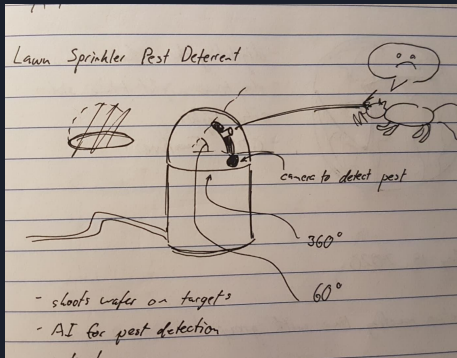 Lawn Sprinkler Pest Deterrent
camera to detect pest
360°
60°
- shoots water on targets
- AI for pest detection